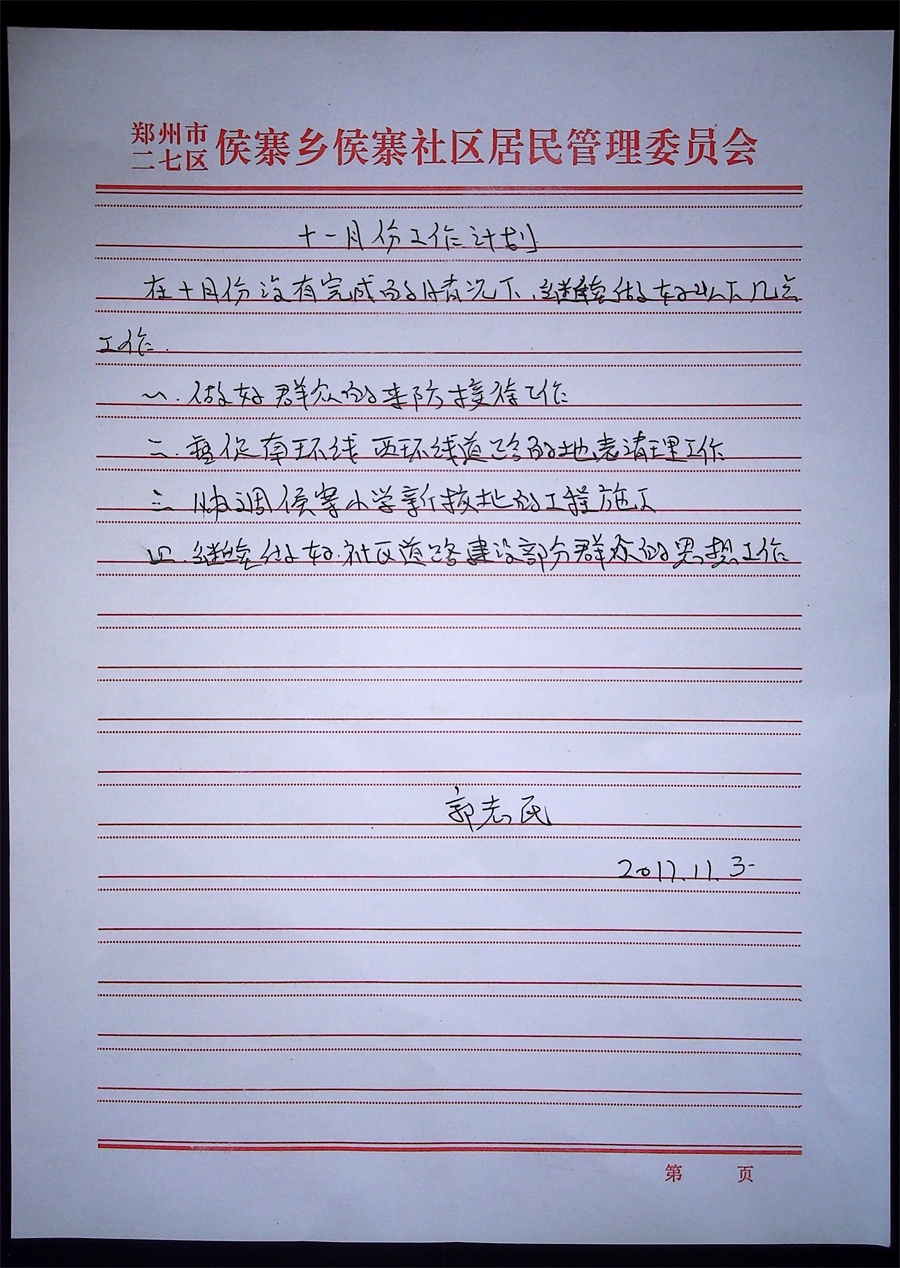 郑州市
二七区 侯寨乡侯寨社区居民管理委员会
十一月份工作计划
在十月份没有完成的情况下,继续做好以下几点
工作.
一.做好群众的来防接待工作
二.督促南环线 西环线道路的地表清理工作
三 协调侯寨小学新校址的工程施工
四.继续做好.社区道路建设部分群众的思想工作
郭志民
2017.11.3
第 页